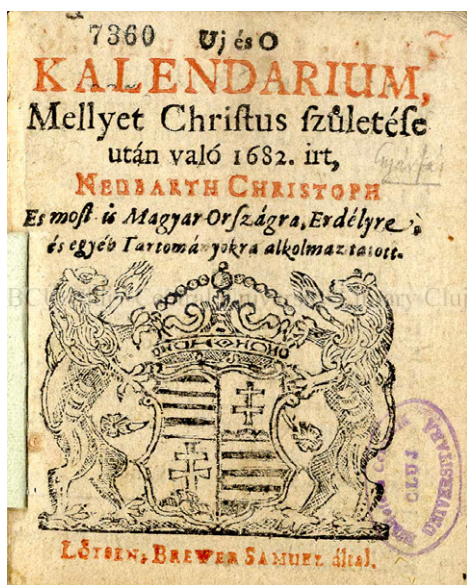 7360 Uj és O
KALENDARIUM,
Mellyet Chriſtus ſzületéſe
után való 1682. irt,
NEUBARTH CHRISTOPH
Es moſt is Magyar Orſzágra, Erdélyre,
és egyéb Tartományokra alkolmaztatott.
CLUJ
LŐTSEN, BREWER SAMUEL által.